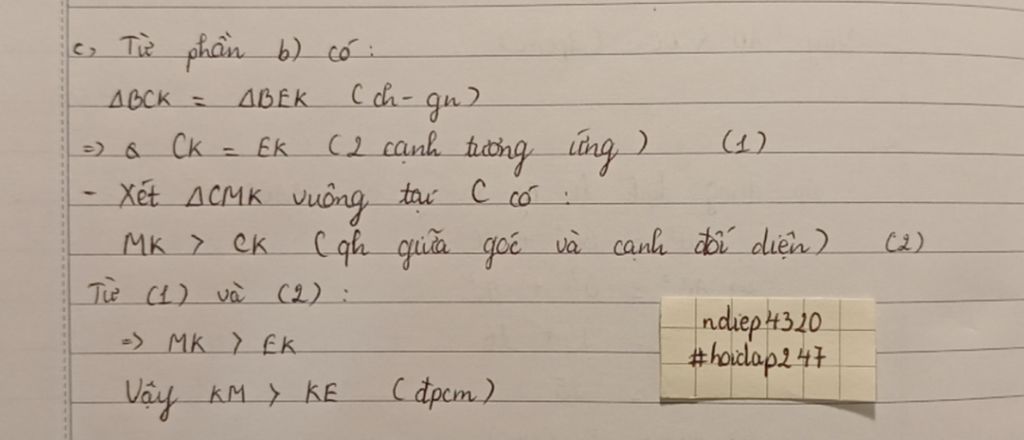 c, Từ phần b) có :
ΔBCK = ΔBEK (ch - gn)
=> & CK = EK (2 cạnh tương ứng) (1)
- Xét ΔCMK vuông tại C có :
MK > CK (qh giữa góc và cạnh đối diện) (2)
Từ (1) và (2) :
=> MK > EK
Vậy KM > KE (đpcm)
ndiep4320
#hoidap247